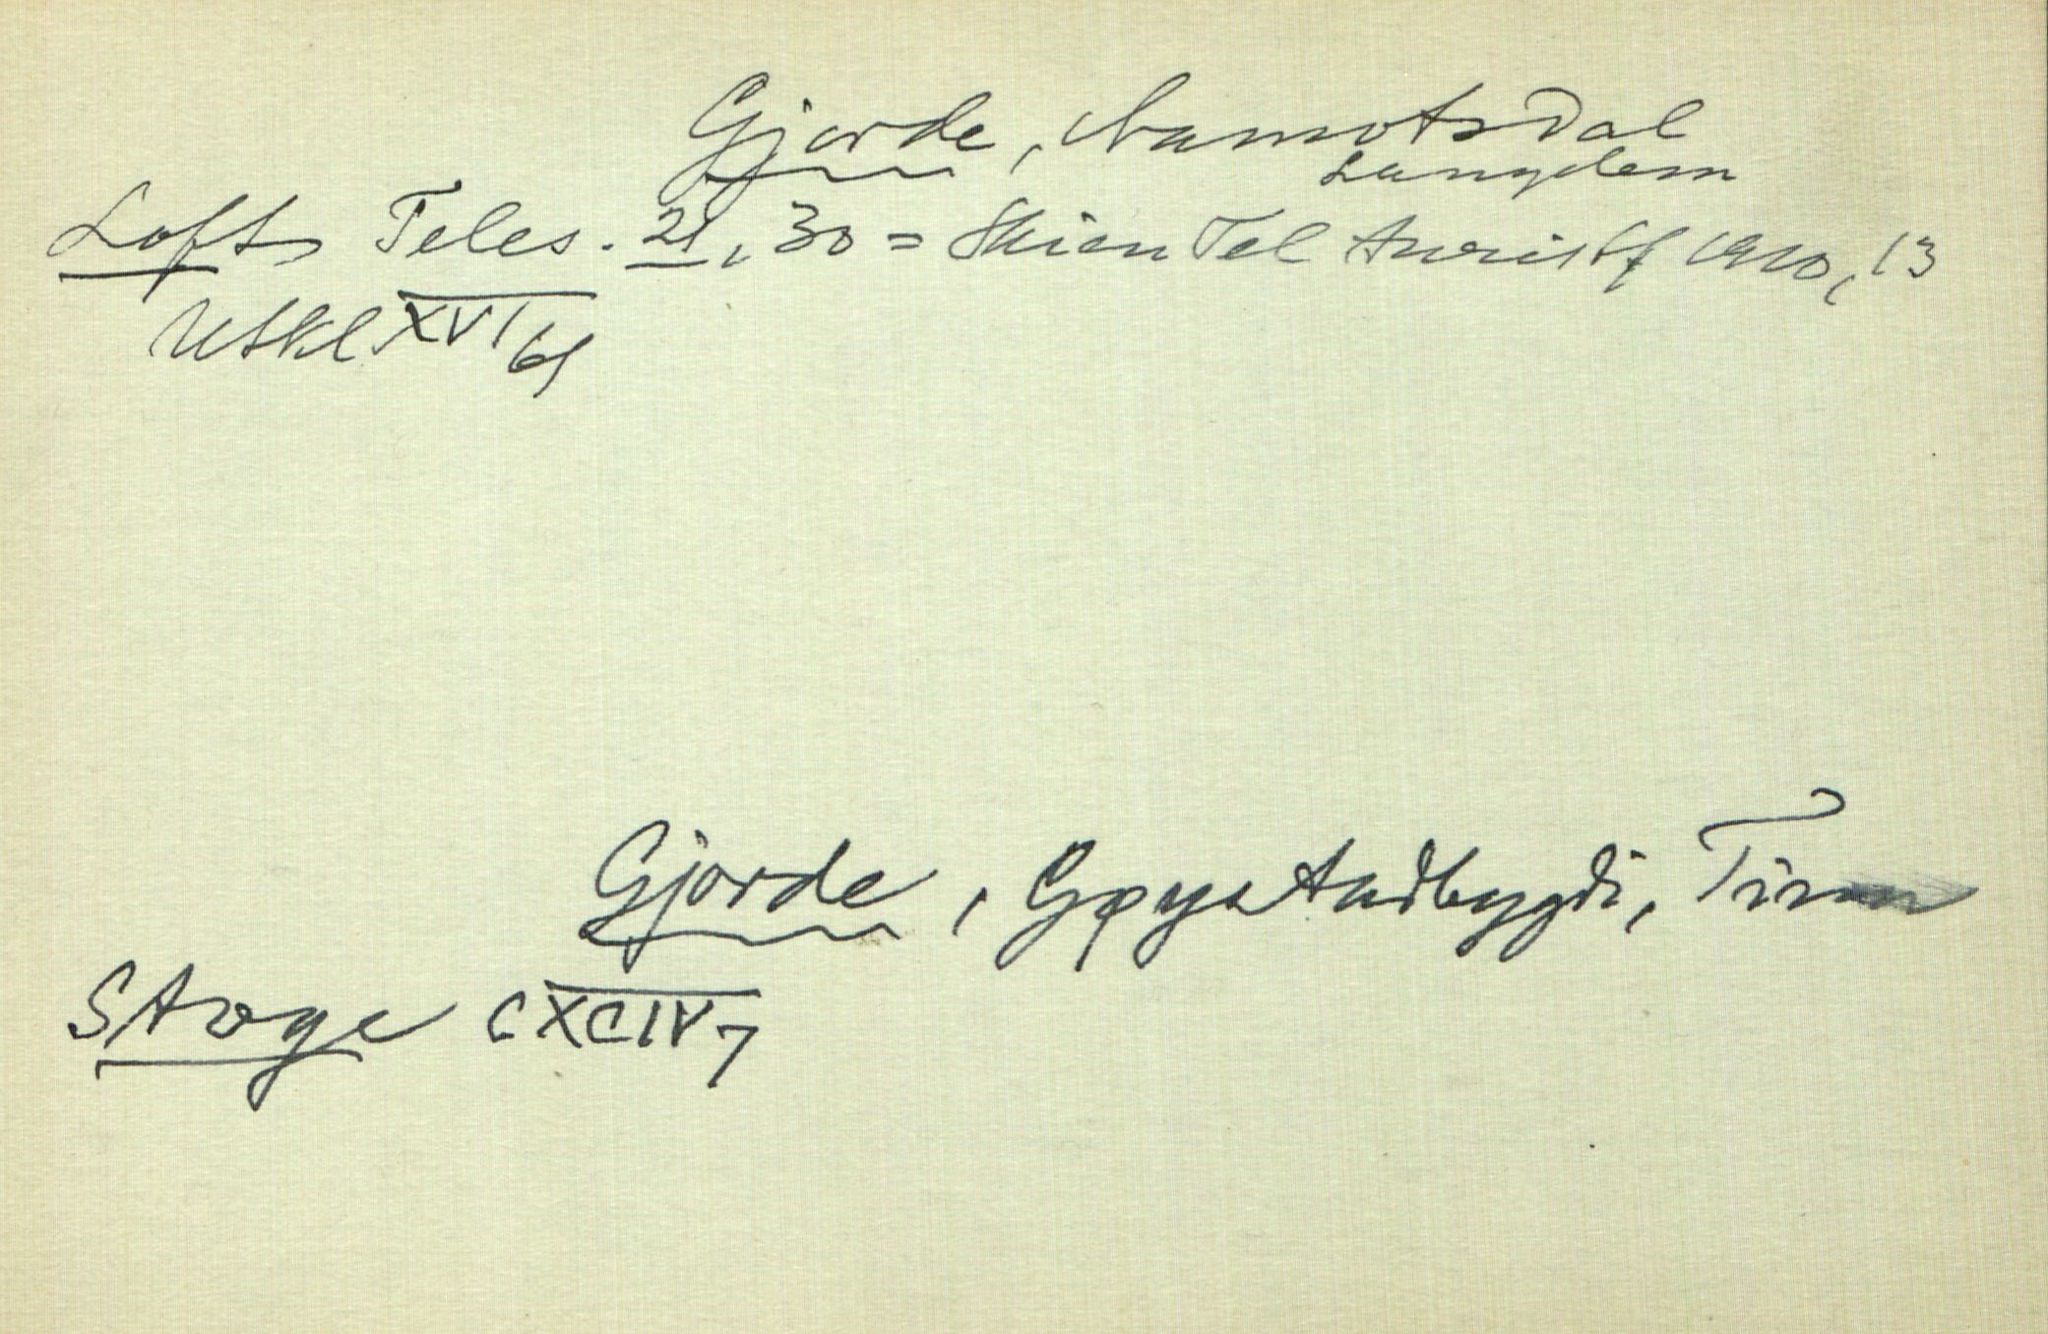 Gjorde, Aamotsdal
Langdem
Loft Teles. 21, 30 = Skien Tel Turistf 1910, 13
Utskl XVI 61
Gjorde, Gøystadbygdi, Tinn
Stoge CXCIV 7